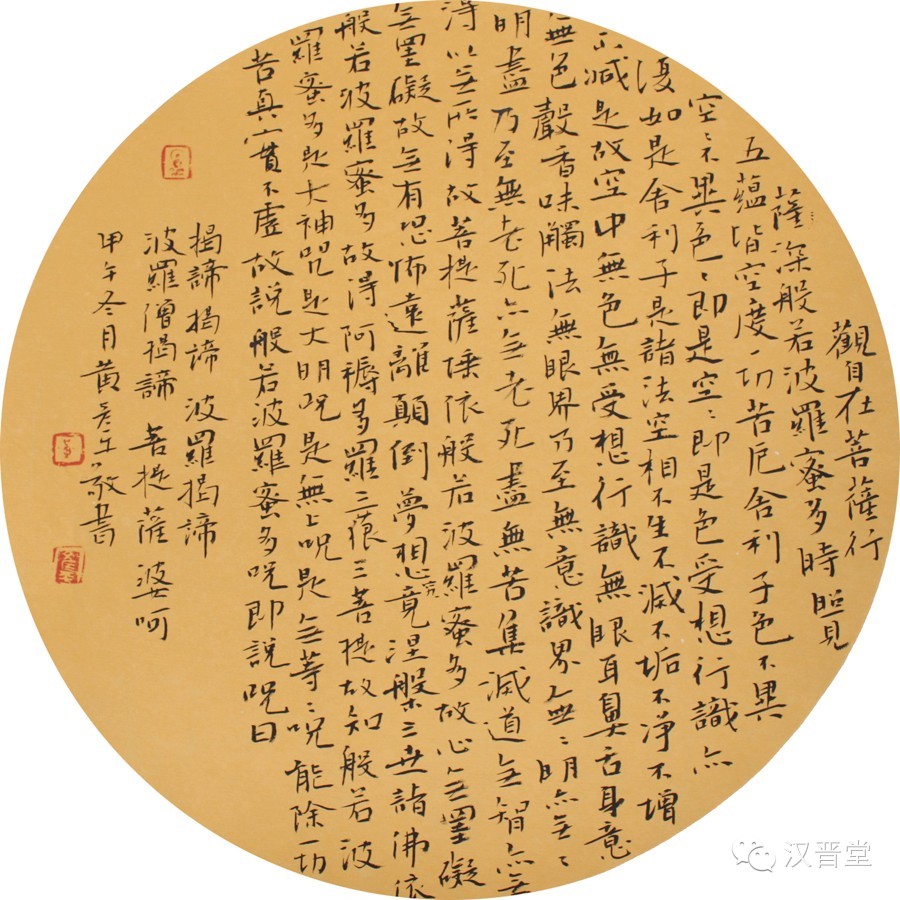 觀自在菩薩行
薩深般若波羅蜜多時照見
五蘊皆空度一切苦厄舍利子色不異
空〻不異色〻即是空〻即是色受想行識亦
復如是舍利子是諸法空相不生不滅不垢不净不增
不減是故空中無色無受想行識無眼耳鼻舌身意
無色聲香味觸法無眼界乃至無意識界無〻明亦无〻
明盡乃至無老死亦无老死盡無苦集滅道无智亦无
得以无所得故菩提薩埵依般若波羅蜜多故心无罣礙
无罣礙故无有恐怖遠離顛倒夢想究竟涅槃三世諸佛依
般若波羅蜜多故得阿耨多羅三藐三菩提故知般若波
羅蜜多是大神咒是大明咒是無上咒是无等〻咒能除一切
苦真實不虛故說般若波羅蜜多咒即說咒曰
揭諦揭諦 波羅揭諦
波羅僧揭諦 菩提薩婆呵
甲午冬月黃彥生敬書
汉晋堂